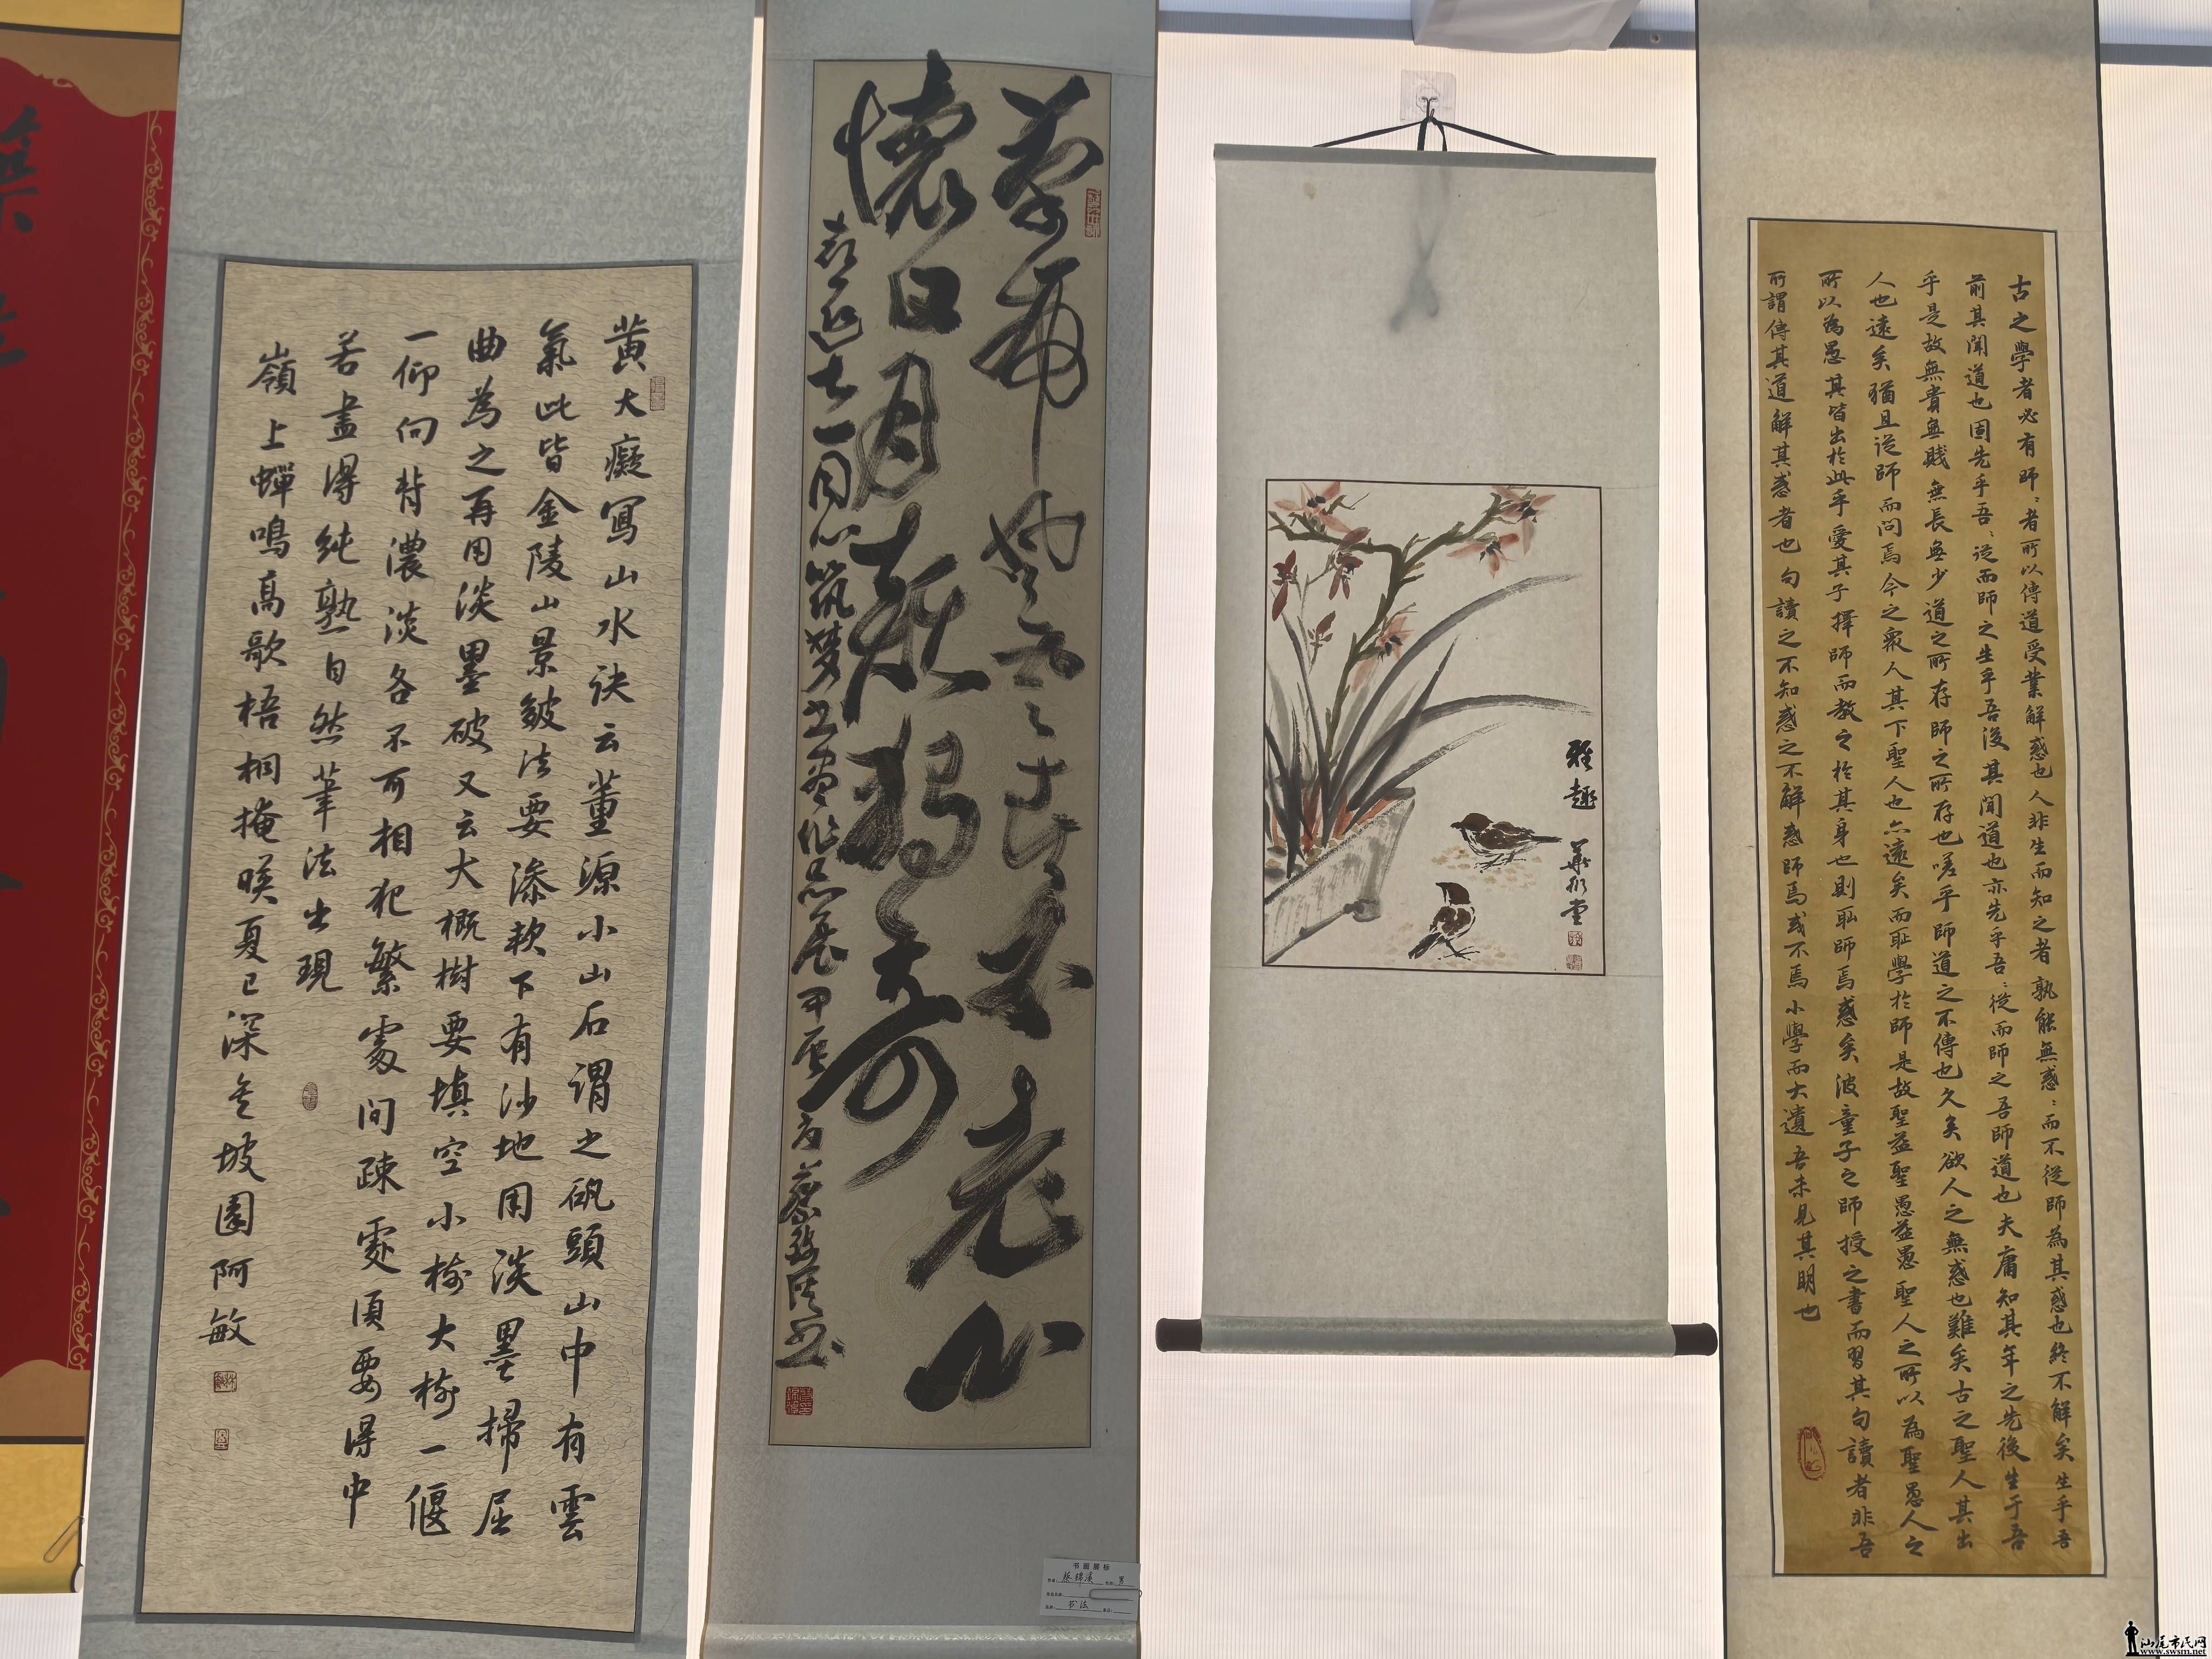 黄大癡寫山水诀云董源小山石謂之矾頭山中有雲
氣此皆金陵山景皴法要滲軟下有沙地用淡墨掃屈
曲為之再用淡墨破又云大概樹要填空小樹大樹一偃
一仰向背濃淡各不可相犯繁處间疎處須要得中
若畫得純熟自然筆法出現
嶺上蟬鳴高歌梧桐掩暎夏已深 坡園阿敏
不老心
懷日月
喜迎七一同心筑梦书画作品展甲辰夏蔡锦溪书
书画展标
蔡锦溪 男
书法
雅趣
古之學者必有師:者所以傳道受業解惑也人非生而知之者孰能無惑:而不從師為其惑也終不解矣生乎吾
前其聞道也固先乎吾:從而師之生乎吾後其聞道也亦先乎吾:從而師之吾師道也夫庸知其年之先後生于吾
乎是故無貴無賤無長無少道之所存師之所存也嗟乎師道之不傳也久矣欲人之無惑也難矣古之聖人其出
人也遠矣猶且從師而问焉今之衆人其下聖人也亦遠矣而恥學於師是故聖益聖愚益愚聖人之所以為聖愚人之
所以為愚其皆出於此乎愛其子擇師而教之於其身也則恥師焉惑矣彼童子之師授之書而習其句讀者非吾
所謂傳其道解其惑者也句讀之不知惑之不解惑師焉或不焉小學而大遺吾未見其明也
汕尾市民网
www.swsm.net